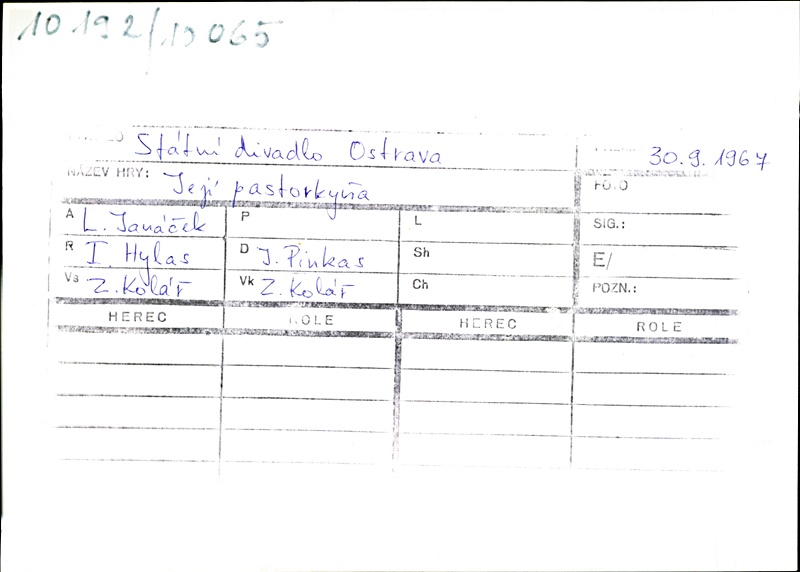 10 192/10 065
Státní divadlo Ostrava 30.9.1967
NÁZEV HRY: Její pastorkyňa FOTO
A L. Janáček P L SIG.:
R I. Hylas D J. Pinkas Sh E/
Vs Z. Kolář Vk Z. Kolář Ch POZN.:
HEREC ROLE HEREC ROLE